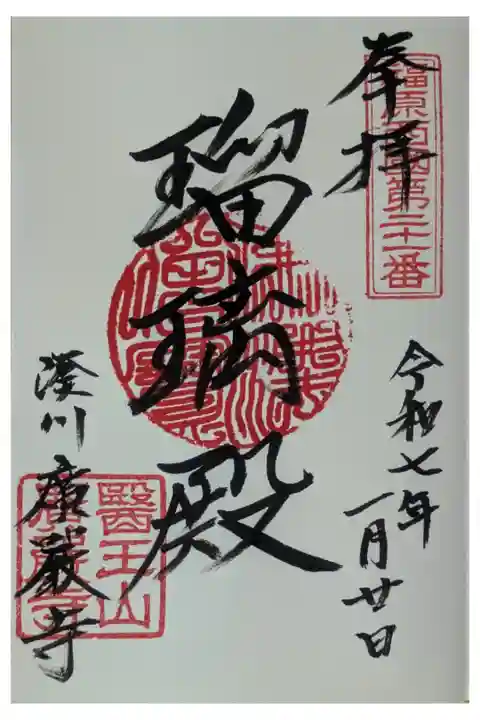 奉拝
福原西國第二十一番
令和七年
一月廿日
瑠璃殿
湊川
廣嚴寺
醫王山